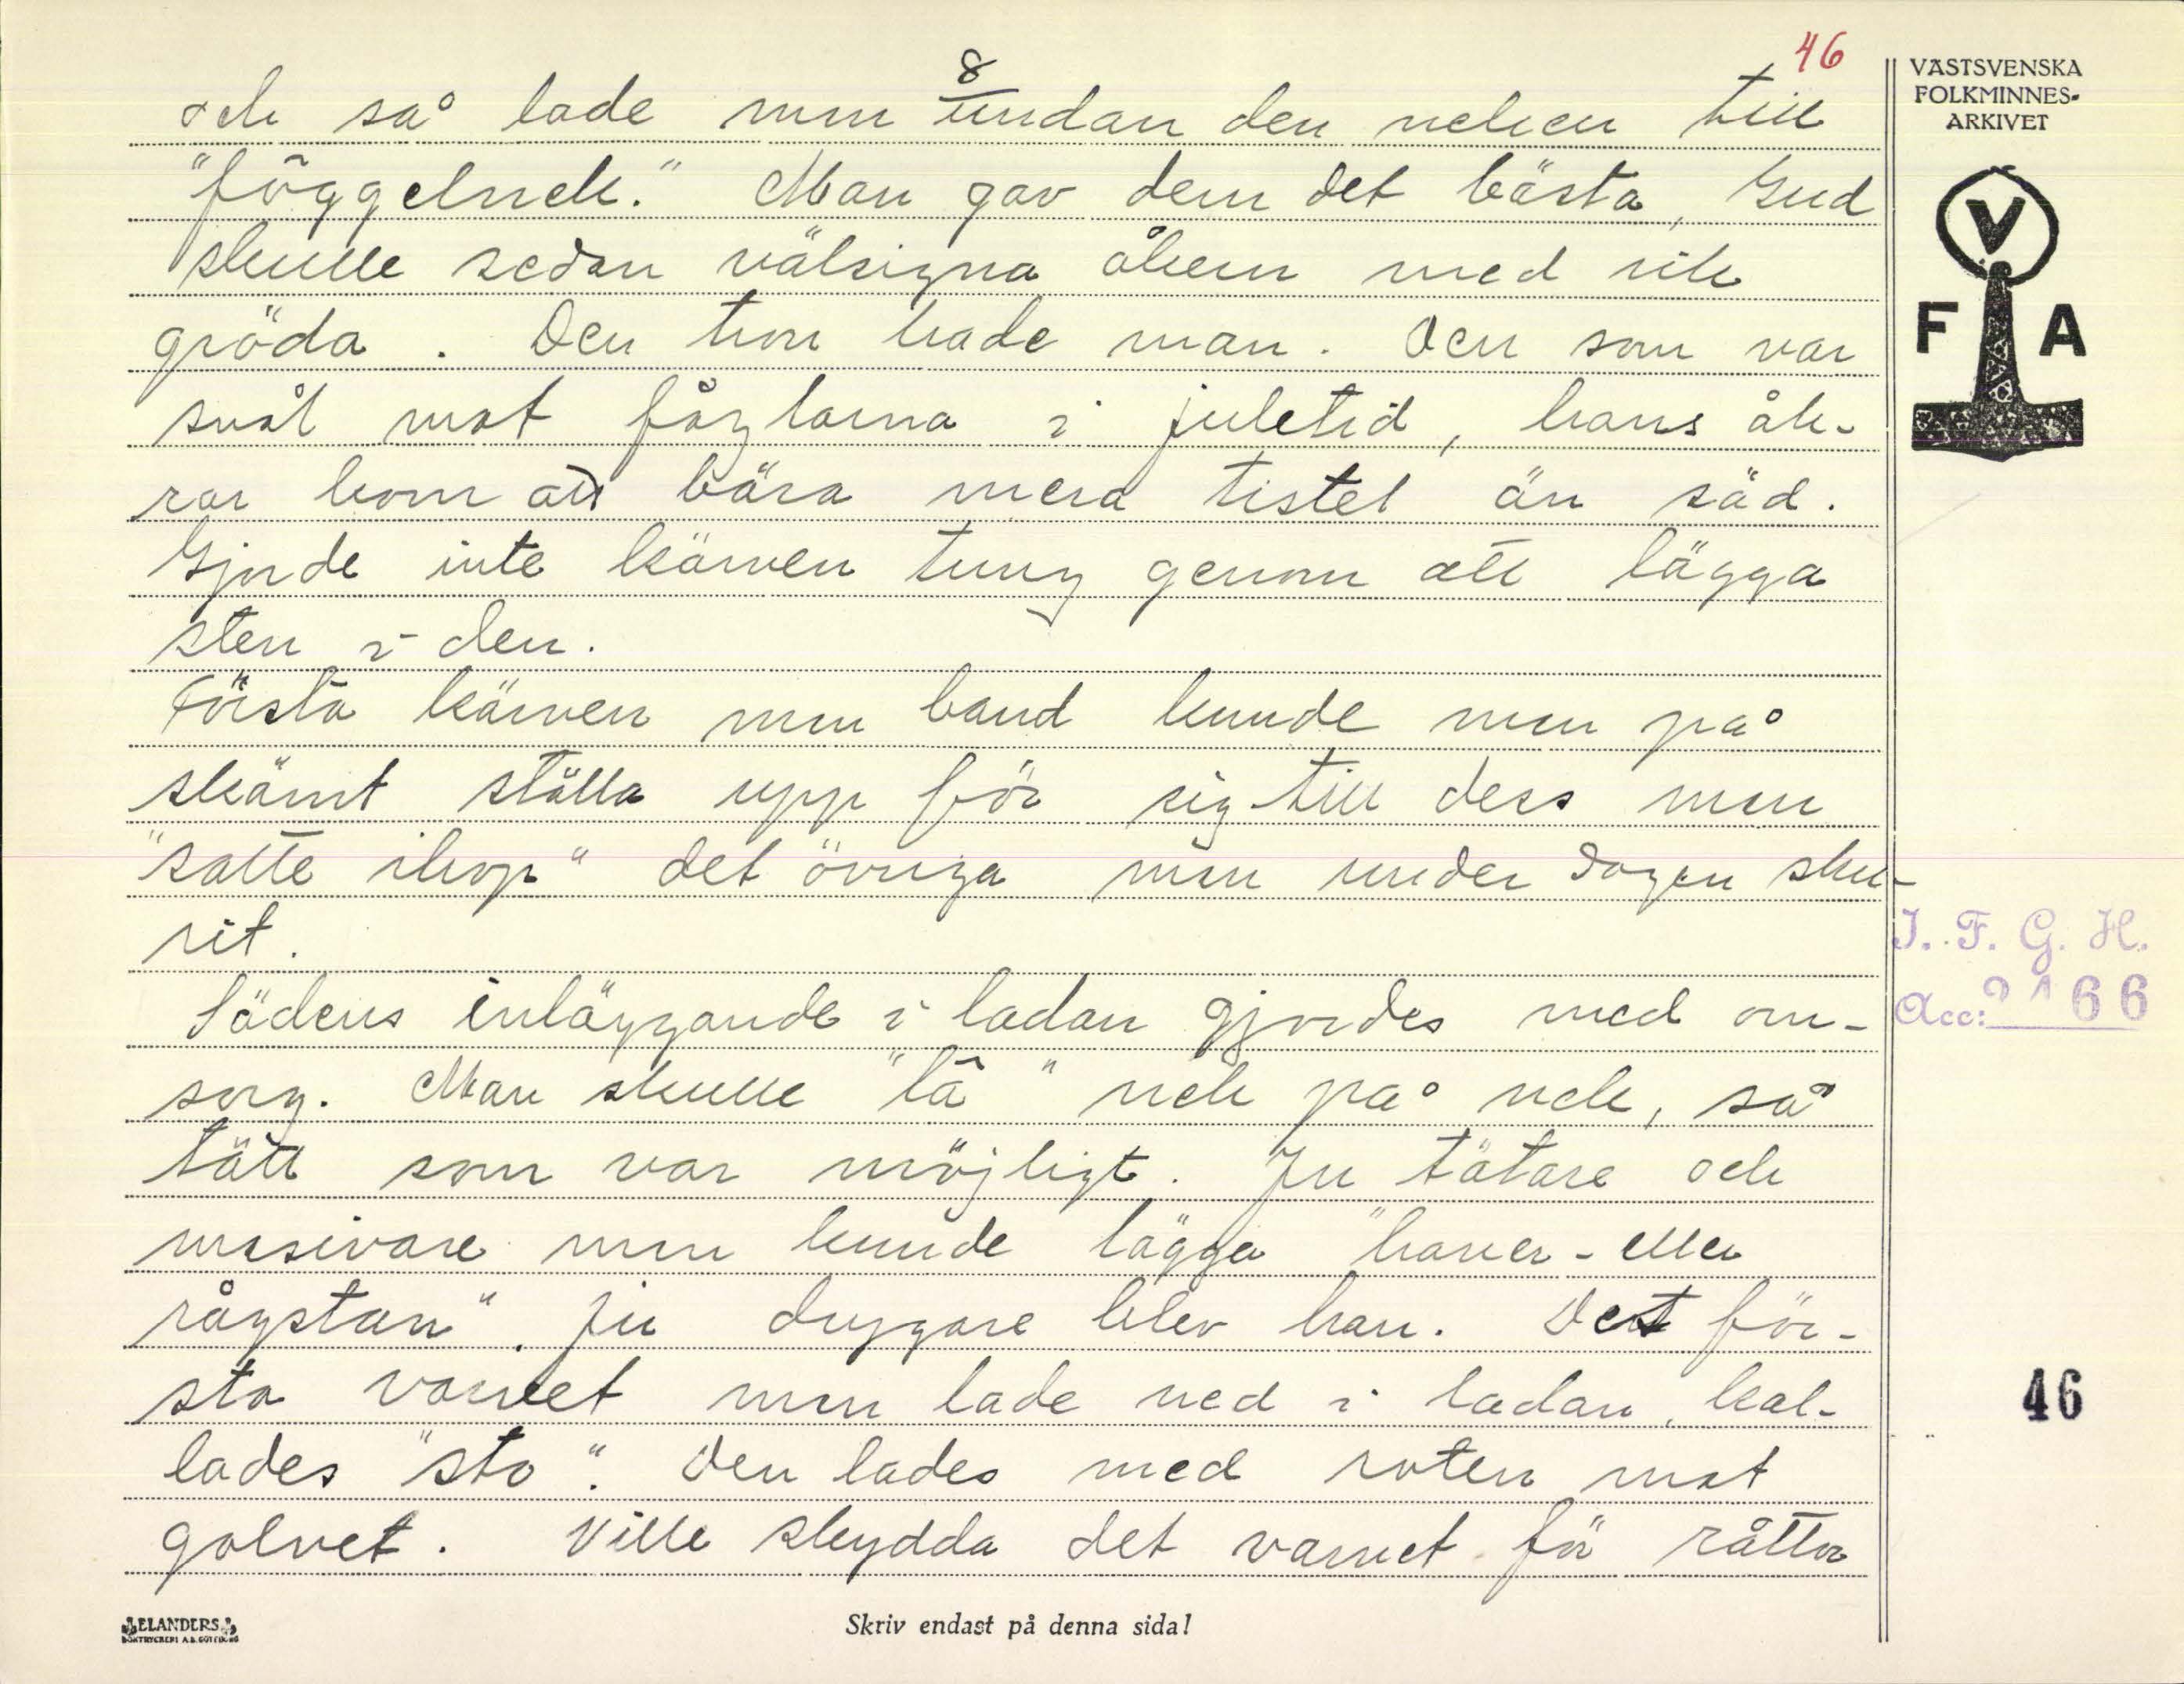 46
8
och så lade man undan den neken till
"föggelnek." Man gav dem det bästa, Gud
skulle sedan välsigna åkern med rik
gröda. Den tron hade man. Den som var
snål mot fåglarna i juletid, hans åk-
rar kom att bära mera tistel än säd.
Gjorde inte kärven tung genom att lägga
sten i den.
Första kärven man band kunde man på
skämt ställa upp för sig till dess man
"satte ihop" det övriga man under dagen sku-
rit.
Sädens inläggande i ladan gjordes med om-
sorg. Man skulle "lä" nek på nek, så
tätt som var möjligt. Ju tätare och
masivare man kunde lägga "haver- eller
rågstan", ju drygare blev han. Det för-
sta varvet man lade ned i ladan, kal-
lades "sto". Den lades med roten mot
golvet. Ville skydda det varvet för råttor
VÄSTSVENSKA
FOLKMINNES-
ARKIVET
V
F A
I. F. G. H.
Acc: 2166
46
ELANDERS
BOKTRYCKERI A.B. GÖTEBORG
Skriv endast på denna sida!